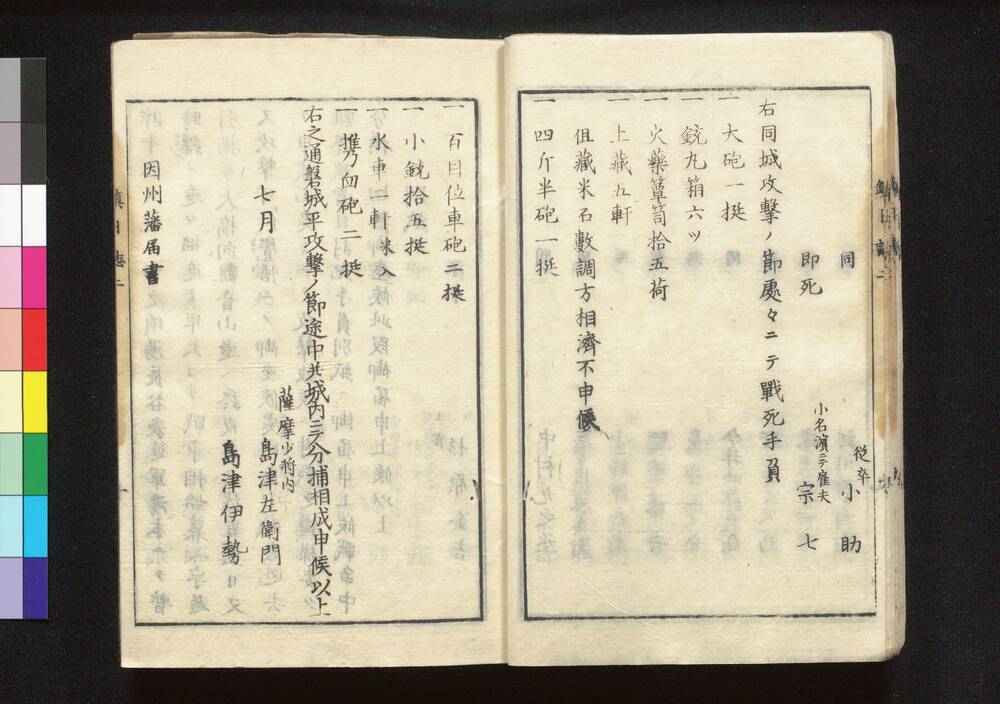 同 従卒 小助
即死 小名濱ニテ雇夫 宗七
右同城攻撃ノ節處々ニテ戰死手負
一 大砲一挺
一 銃丸箱六ツ
一 火薬簞笥拾五荷
一 土藏五軒
但藏米石數調方相濟不申候
一 四斤半砲一挺
一 百目位車砲二挺
一 小銃拾五挺
一 水車二軒 米入
一 推乃白砲二挺
右之通磐城平攻撃ノ節途中共城内ニテ分捕相成申候以上
薩摩少将内
七月 島津左衛門
島津伊勢
因州藩届書